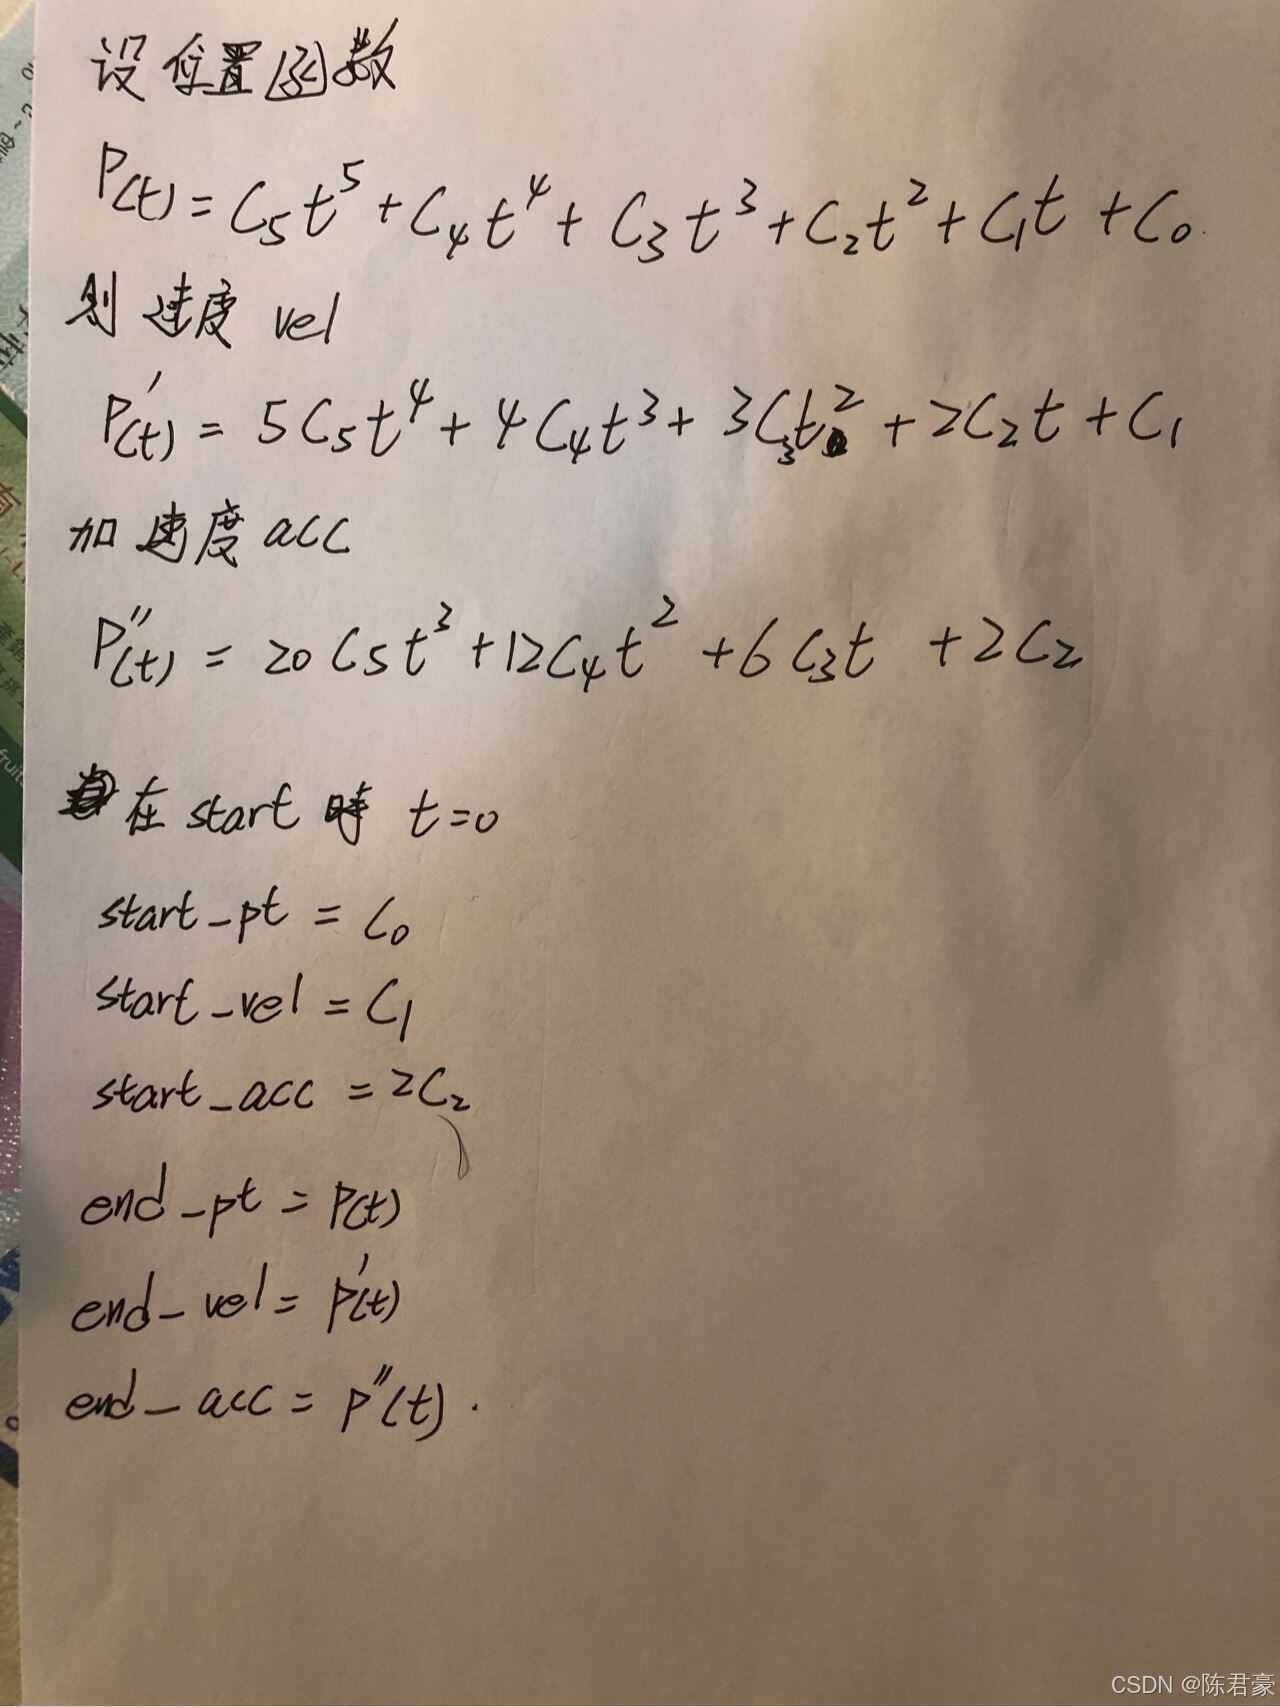 设位置函数
P(t) = C₅t⁵ + C₄t⁴ + C₃t³ + C₂t² + C₁t + C₀
则速度 vel
P'(t) = 5C₅t⁴ + 4C₄t³ + 3C₃t² + 2C₂t + C₁
加速度 acc
P''(t) = 20C₅t³ + 12C₄t² + 6C₃t + 2C₂
在 start 時 t=0
start_pt = C₀
start_vel = C₁
start_acc = 2C₂
end_pt = P(t)
end_vel = P'(t)
end_acc = P''(t).
CSDN @陈君豪